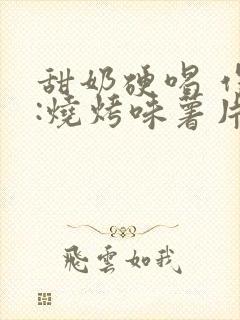 甜奶硬唱
:燒烤味薯片
飛雲如我